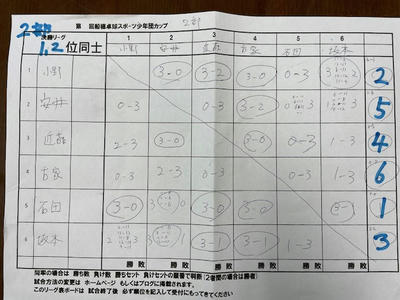 2部
第 回船橋卓球スポーツ少年団カップ 2部
決勝リーグ
1,2位同士
1 2 3 4 5 6
小野 安井 近藤 吉家 石田 坂本
1 小野 3-0 3-2 3-0 0-3 3 2
2 安井 0-3 0-3 3-2 0 3 0-3 5
3 近藤 2-3 3-0 3-0 0-3 1-3 4
4 吉家 0-3 2-3 0-3 0-3 1-3 6
5 石田 3-0 3 0 3-0 3-0 1
6 坂本 3 3-0 3-1 3-1 3
勝 敗 勝 敗 勝 敗 勝 敗 勝 敗 勝 敗
同率の場合は 勝ち数 負け数 勝ちセット 負けセットの順番で判断 (2者間の場合は勝者)
試合方法の変更は ホームページ もしくはブログに掲載されます。
このリーグ表ボードは 試合終了後 必ず順位を記入して受付にもってきてください